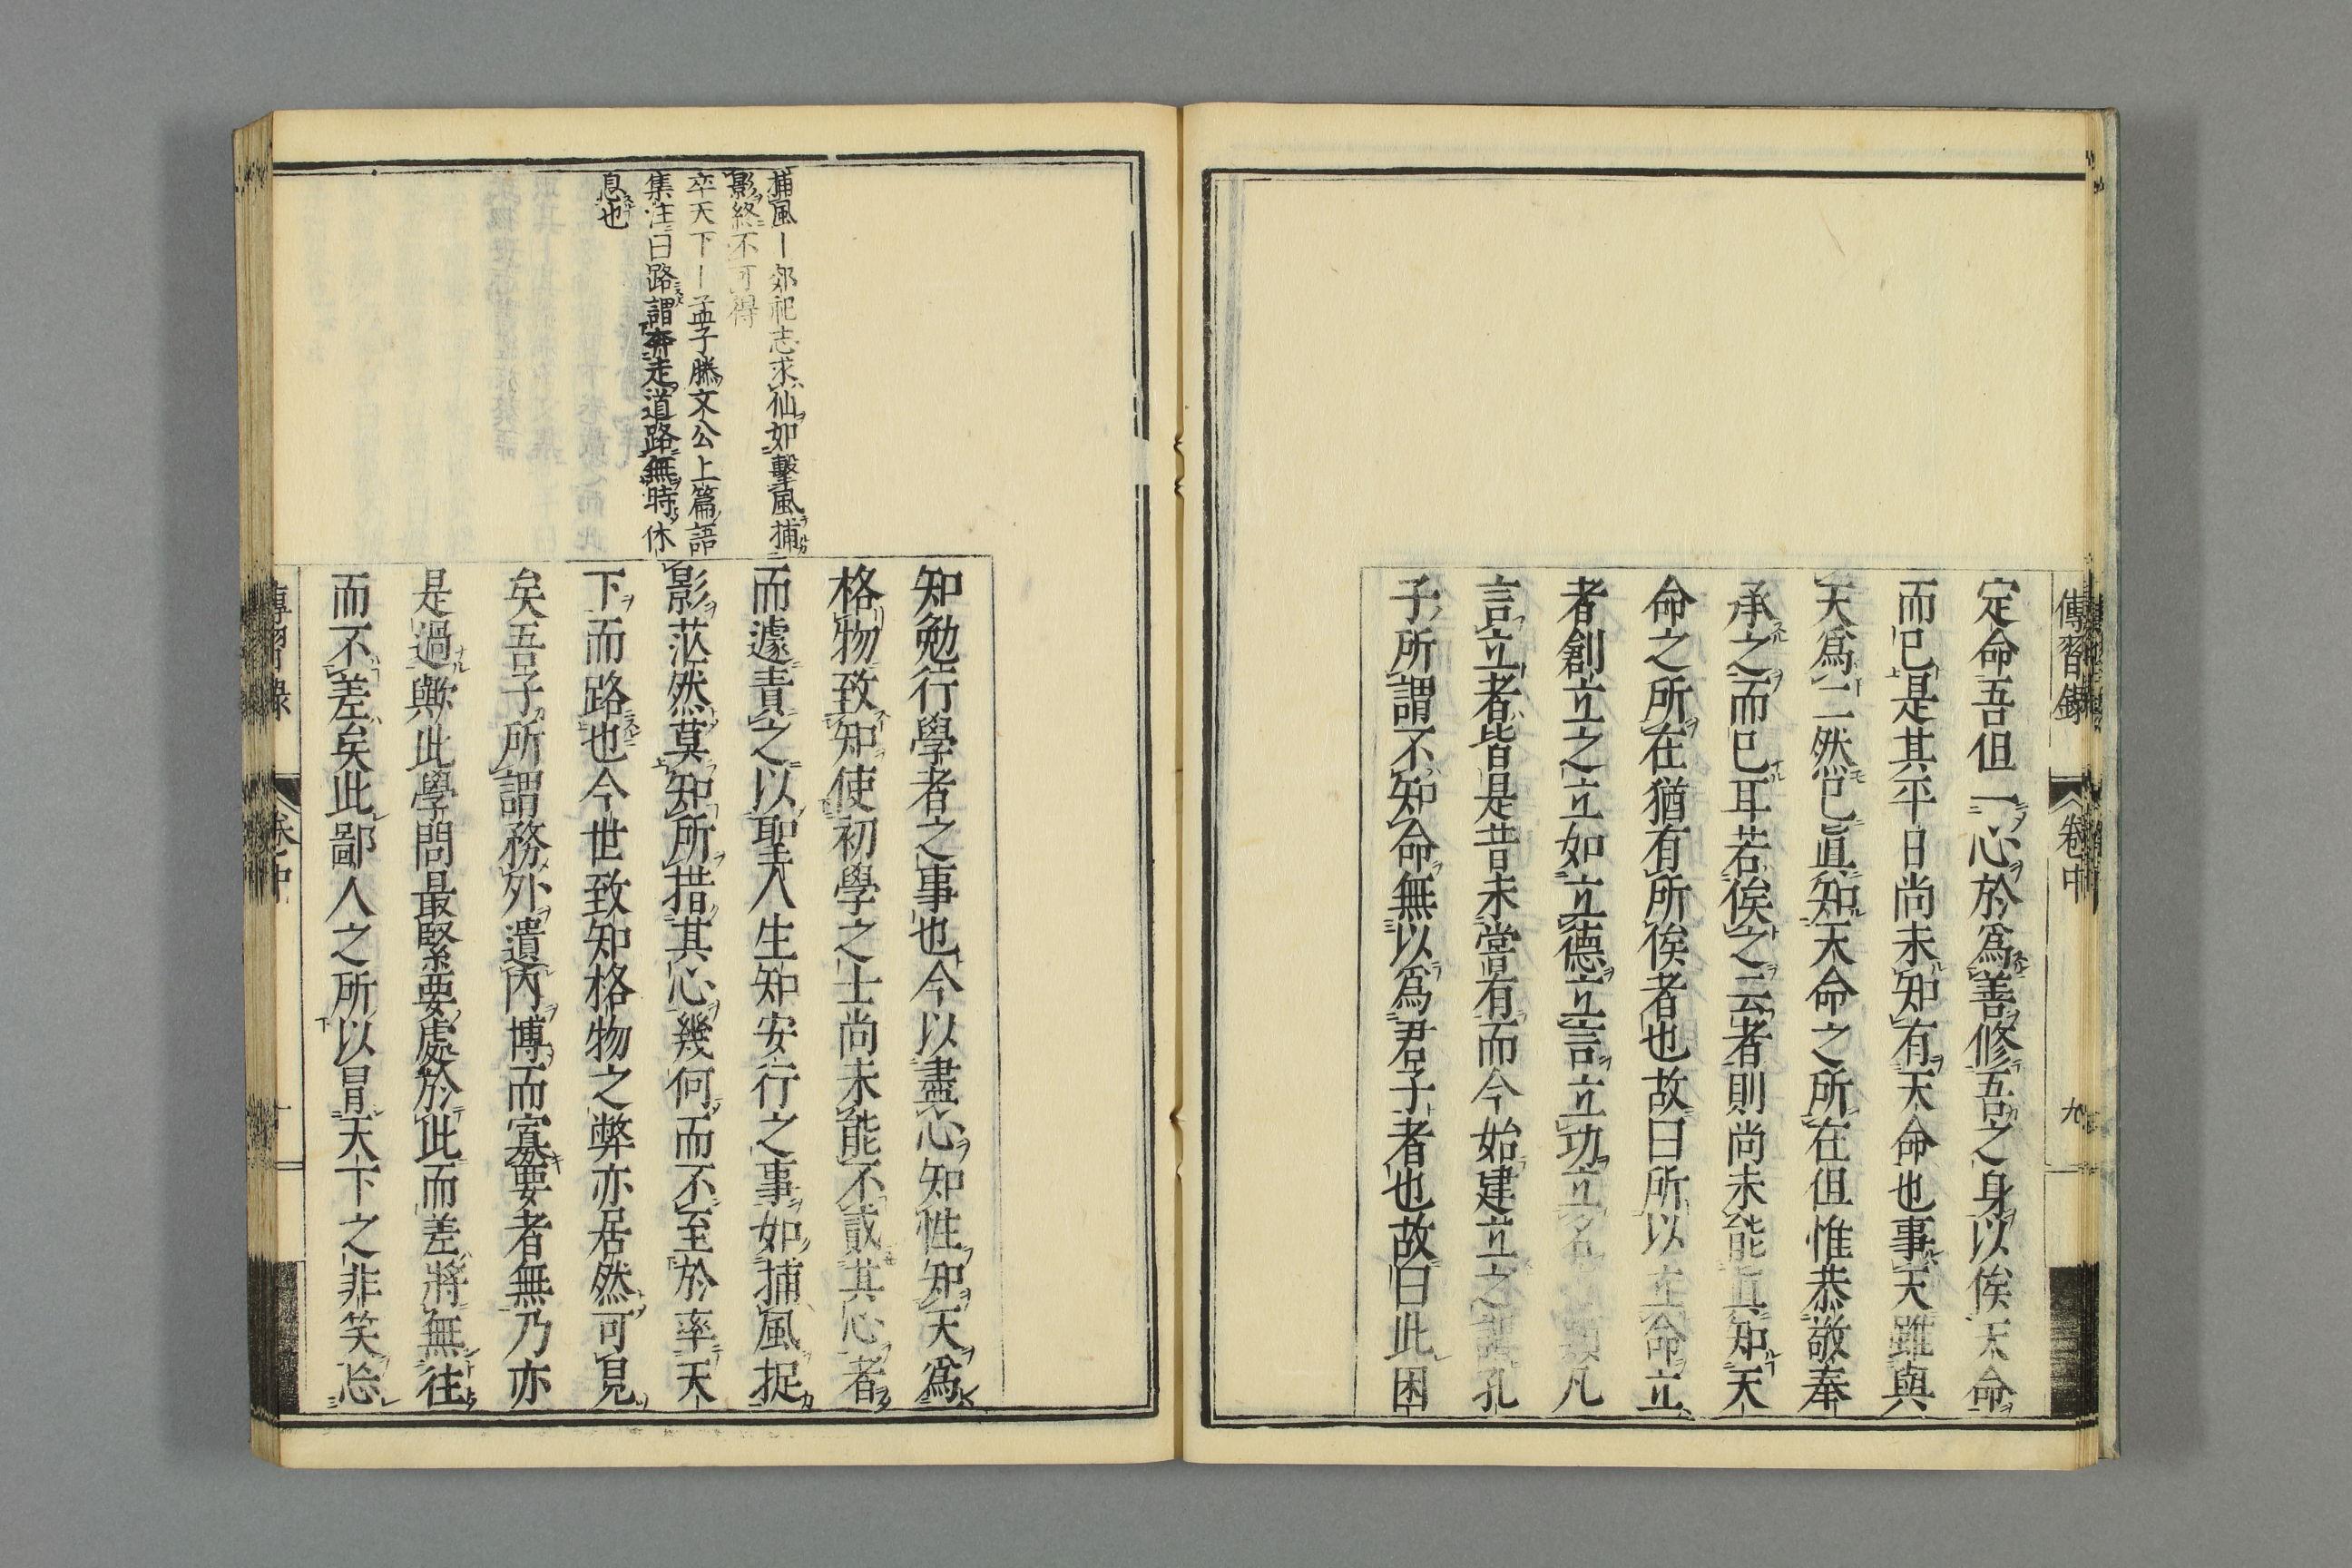 傳習錄
卷中
九
定命吾但一心於爲善修吾之身以俟天命
而已是其平日尚未知有天命也事天雖與
天爲二然已眞知天命之所在但惟恭敬奉
承之而已耳若俟之云者則尚未能眞知天
命之所在猶有所俟者也故曰所以立命立
者創立之立如立德立言立功立名之類凡
言立者皆是昔未嘗有而今始建立之謂孔
子所謂不知命無以爲君子者也故曰此困
捕風｜郊祀志求仙如擊風捕
影終不可得
卒天下｜孟子滕文公上篇語
集注曰路謂奔走道路無時休
息也
知勉行學者之事也今以盡心知性知天爲
格物致知使初學之士尚未能不貳其心者
而遽責之以聖人生知安行之事如捕風捉
影茫然莫知所措其心幾何而不至於率天
下而路也今世致知格物之弊亦居然可見
矣吾子所謂務外遺內博而寡要者無乃亦
是過歟此學問最緊要處於此而差將無往
而不差矣此鄙人之所以冒天下之非笑忘
傳習錄
卷中